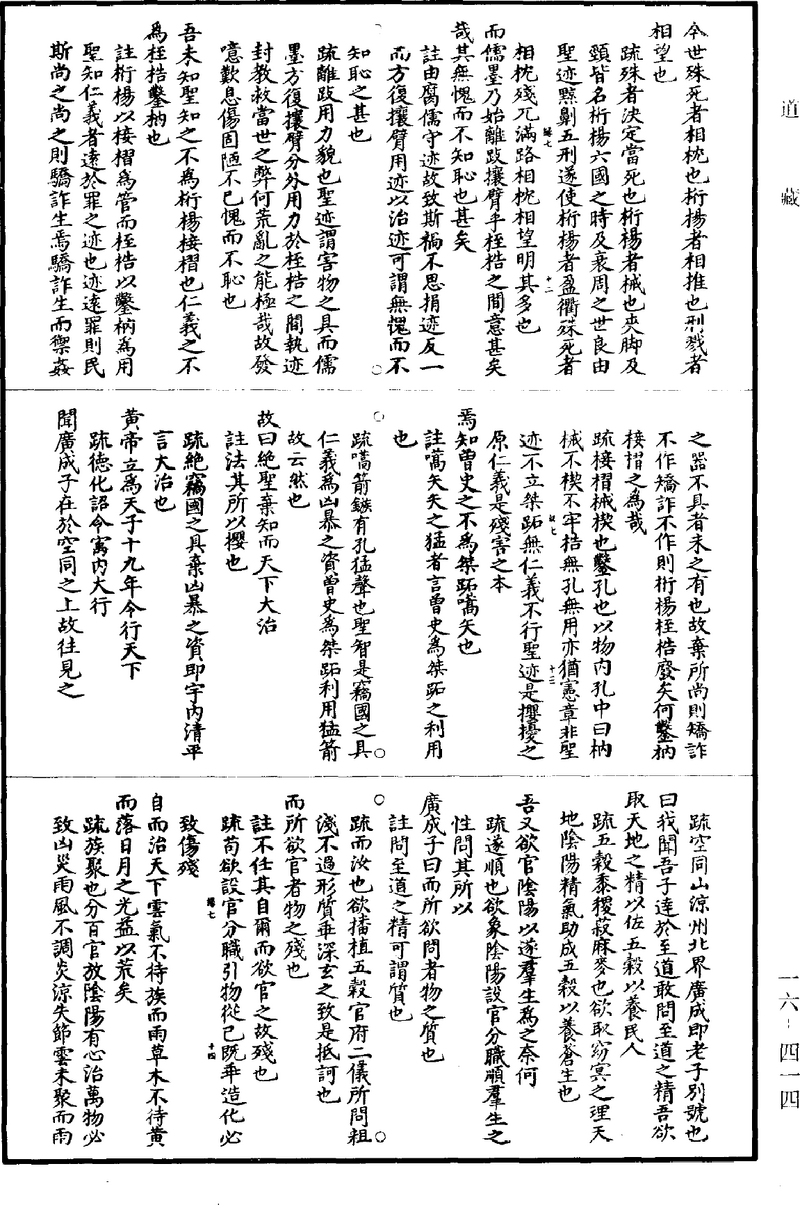 道藏
今世殊死者相枕也桁楊者相推也刑戮者
相望也
疏殊者決定當死也桁楊者械也夾脚及
頸皆名桁楊六國之時及衰周之世良由
聖迹黥劓五刑遂使桁楊者盈衢殊死者
相枕殘兀滿路相枕相望明其多也
而儒墨乃始離跂攘臂乎桎梏之間意甚矣
哉其無愧而不知恥也甚矣
註由腐儒守迹故致斯禍不思捐迹反一
而方復攘臂用迹以治迹可謂無愧而不
知恥之甚也
疏離跂用力貌也聖迹謂害物之具而儒
墨方復攘臂分外用力於桎梏之間執迹
封教救當世之弊何荒亂之能極哉故發
噫歎息傷固陋不已愧而不恥也
吾未知聖知之不為桁楊椄槢也仁義之不
為桎梏鑿枘也
註桁楊以椄槢為管而桎梏以鑿枘為用
聖知仁義者遠於罪之迹也迹遠罪則民
斯尚之尚之則驕詐生焉驕詐生而禦姦
之器不具者未之有也故棄所尚則矯詐
不作矯詐不作則桁楊桎梏廢矣何鑿枘
椄槢之為哉
疏椄槢械楔也鑿孔也以物內孔中曰枘
械不楔不牢梏無孔無用亦猶憲章非聖
迹不立桀跖無仁義不行聖迹是攖擾之
原仁義是殘害之本
焉知曾史之不為桀跖嚆矢也
註嚆矢矢之猛者言曾史為桀跖之利用
也
疏嚆箭鏃有孔猛聲也聖智是竊國之具
仁義為凶暴之資曾史為桀跖利用猛箭
故云然也
故曰絕聖棄知而天下大治
註法其所以攖也
疏絕竊國之具棄凶暴之資即宇內清平
言大治也
黃帝立為天子十九年令行天下
疏德化詔令㝢內大行
聞廣成子在於空同之上故往見之
疏空同山涼州北界廣成即老子別號也
曰我聞吾子達於至道敢問至道之精吾欲
取天地之精以佐五穀以養民人
疏五穀黍稷菽麻麥也欲取窈冥之理天
地陰陽精氣助成五穀以養蒼生也
吾又欲官陰陽以遂羣生為之奈何
疏遂順也欲象陰陽設官分職順羣生之
性問其所以
廣成子曰而所欲問者物之質也
註問至道之精可謂質也
疏而汝也欲播植五穀官府二儀所問粗
淺不過形質乖深玄之致是抵訶也
而所欲官者物之殘也
註不任其自爾而欲官之故殘也
疏苟欲設官分職引物從己既乖造化必
致傷殘
自而治天下雲氣不待族而雨草木不待黃
而落日月之光益以荒矣
疏族聚也分百官放陰陽有心治萬物必
致凶災雨風不調炎涼失節雲未聚而雨
一六-四一四